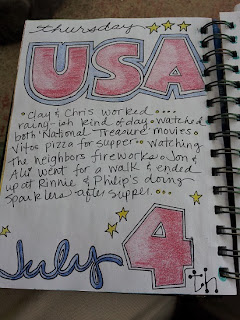 thursday
USA
• Clay & Chris worked....
rainy-ish kind of day • watched
both "National Treasure" movies •
Vitos pizza for supper • watching
the neighbors fireworks • Jon &
Ali went for a walk & ended
up at Rinnie & Philip's doing
sparklers after supper.
July 4
th